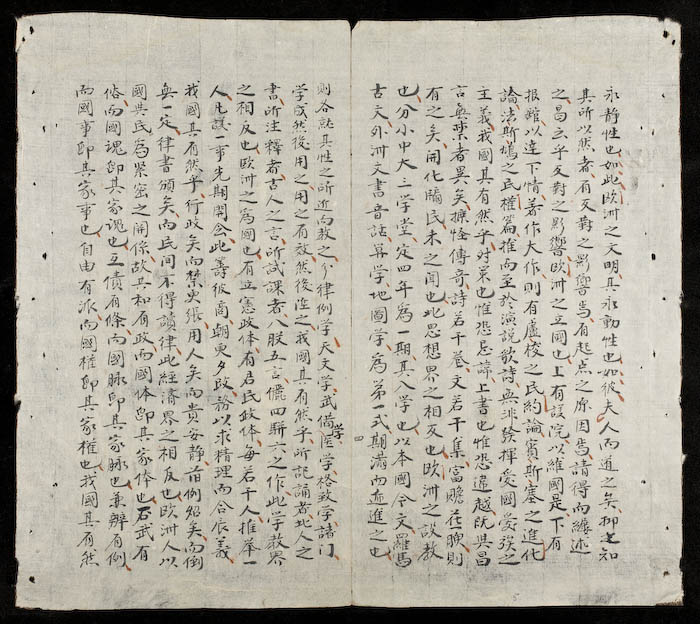 永静性也如此欧洲之文明其永動性也如彼夫人而道之矣抑亦知
其所以然者有反對之影響焉有起点之原因焉請得而縷述
之曷云乎反對之影響欧洲之立國也上有議院以維國是下有
报館以達下情著作大作則有盧梭之民約論賓斯塞之進化
論法斯鳩之民權篇推而至於演説歌詩無非發揮愛國愛張之
主義我國其有然乎対策也惟恐忌諱上書也惟恐違越阮其昌
言無業者異矣據怪傳奇詩若干卷文若干集富瞻花腴則
有之矣開化牖民未之聞也此思想界之相反也欧洲之设教
也分小中大三学堂定四年為一期其入学也以本國今文羅馬
古文外洲文書音話算学地圖学為第一弍期满而亦進之也
四
則各就其性之所近而教之分律例学天文学武備学医学格致学諸门
学成然後用之用之有效然後進之我國其有然乎所記誦者北人之
書所注釋者古人之言所試課者八股五言儷四駢六之作此学教界
之相反也欧洲之為國也有立憲政体有君民政体每若干人推举一
人凡議一事先期開会此籌彼商朝更夕改務以求精理而合宜義
我國其有然乎行政矣而禁更張用人矣而貴安静省例紹矣而倒
無一定律書頒矣而民间不得讀律此經濟界之相反也欧洲人以
國與民為緊密之関係故其和有政而國体即其家体也石武有
俗而國魂即其家魂也互債有條而國脉即其家脉也兼辨有例
而國事即其家事也自由有派而國權即其家權也我國其有然